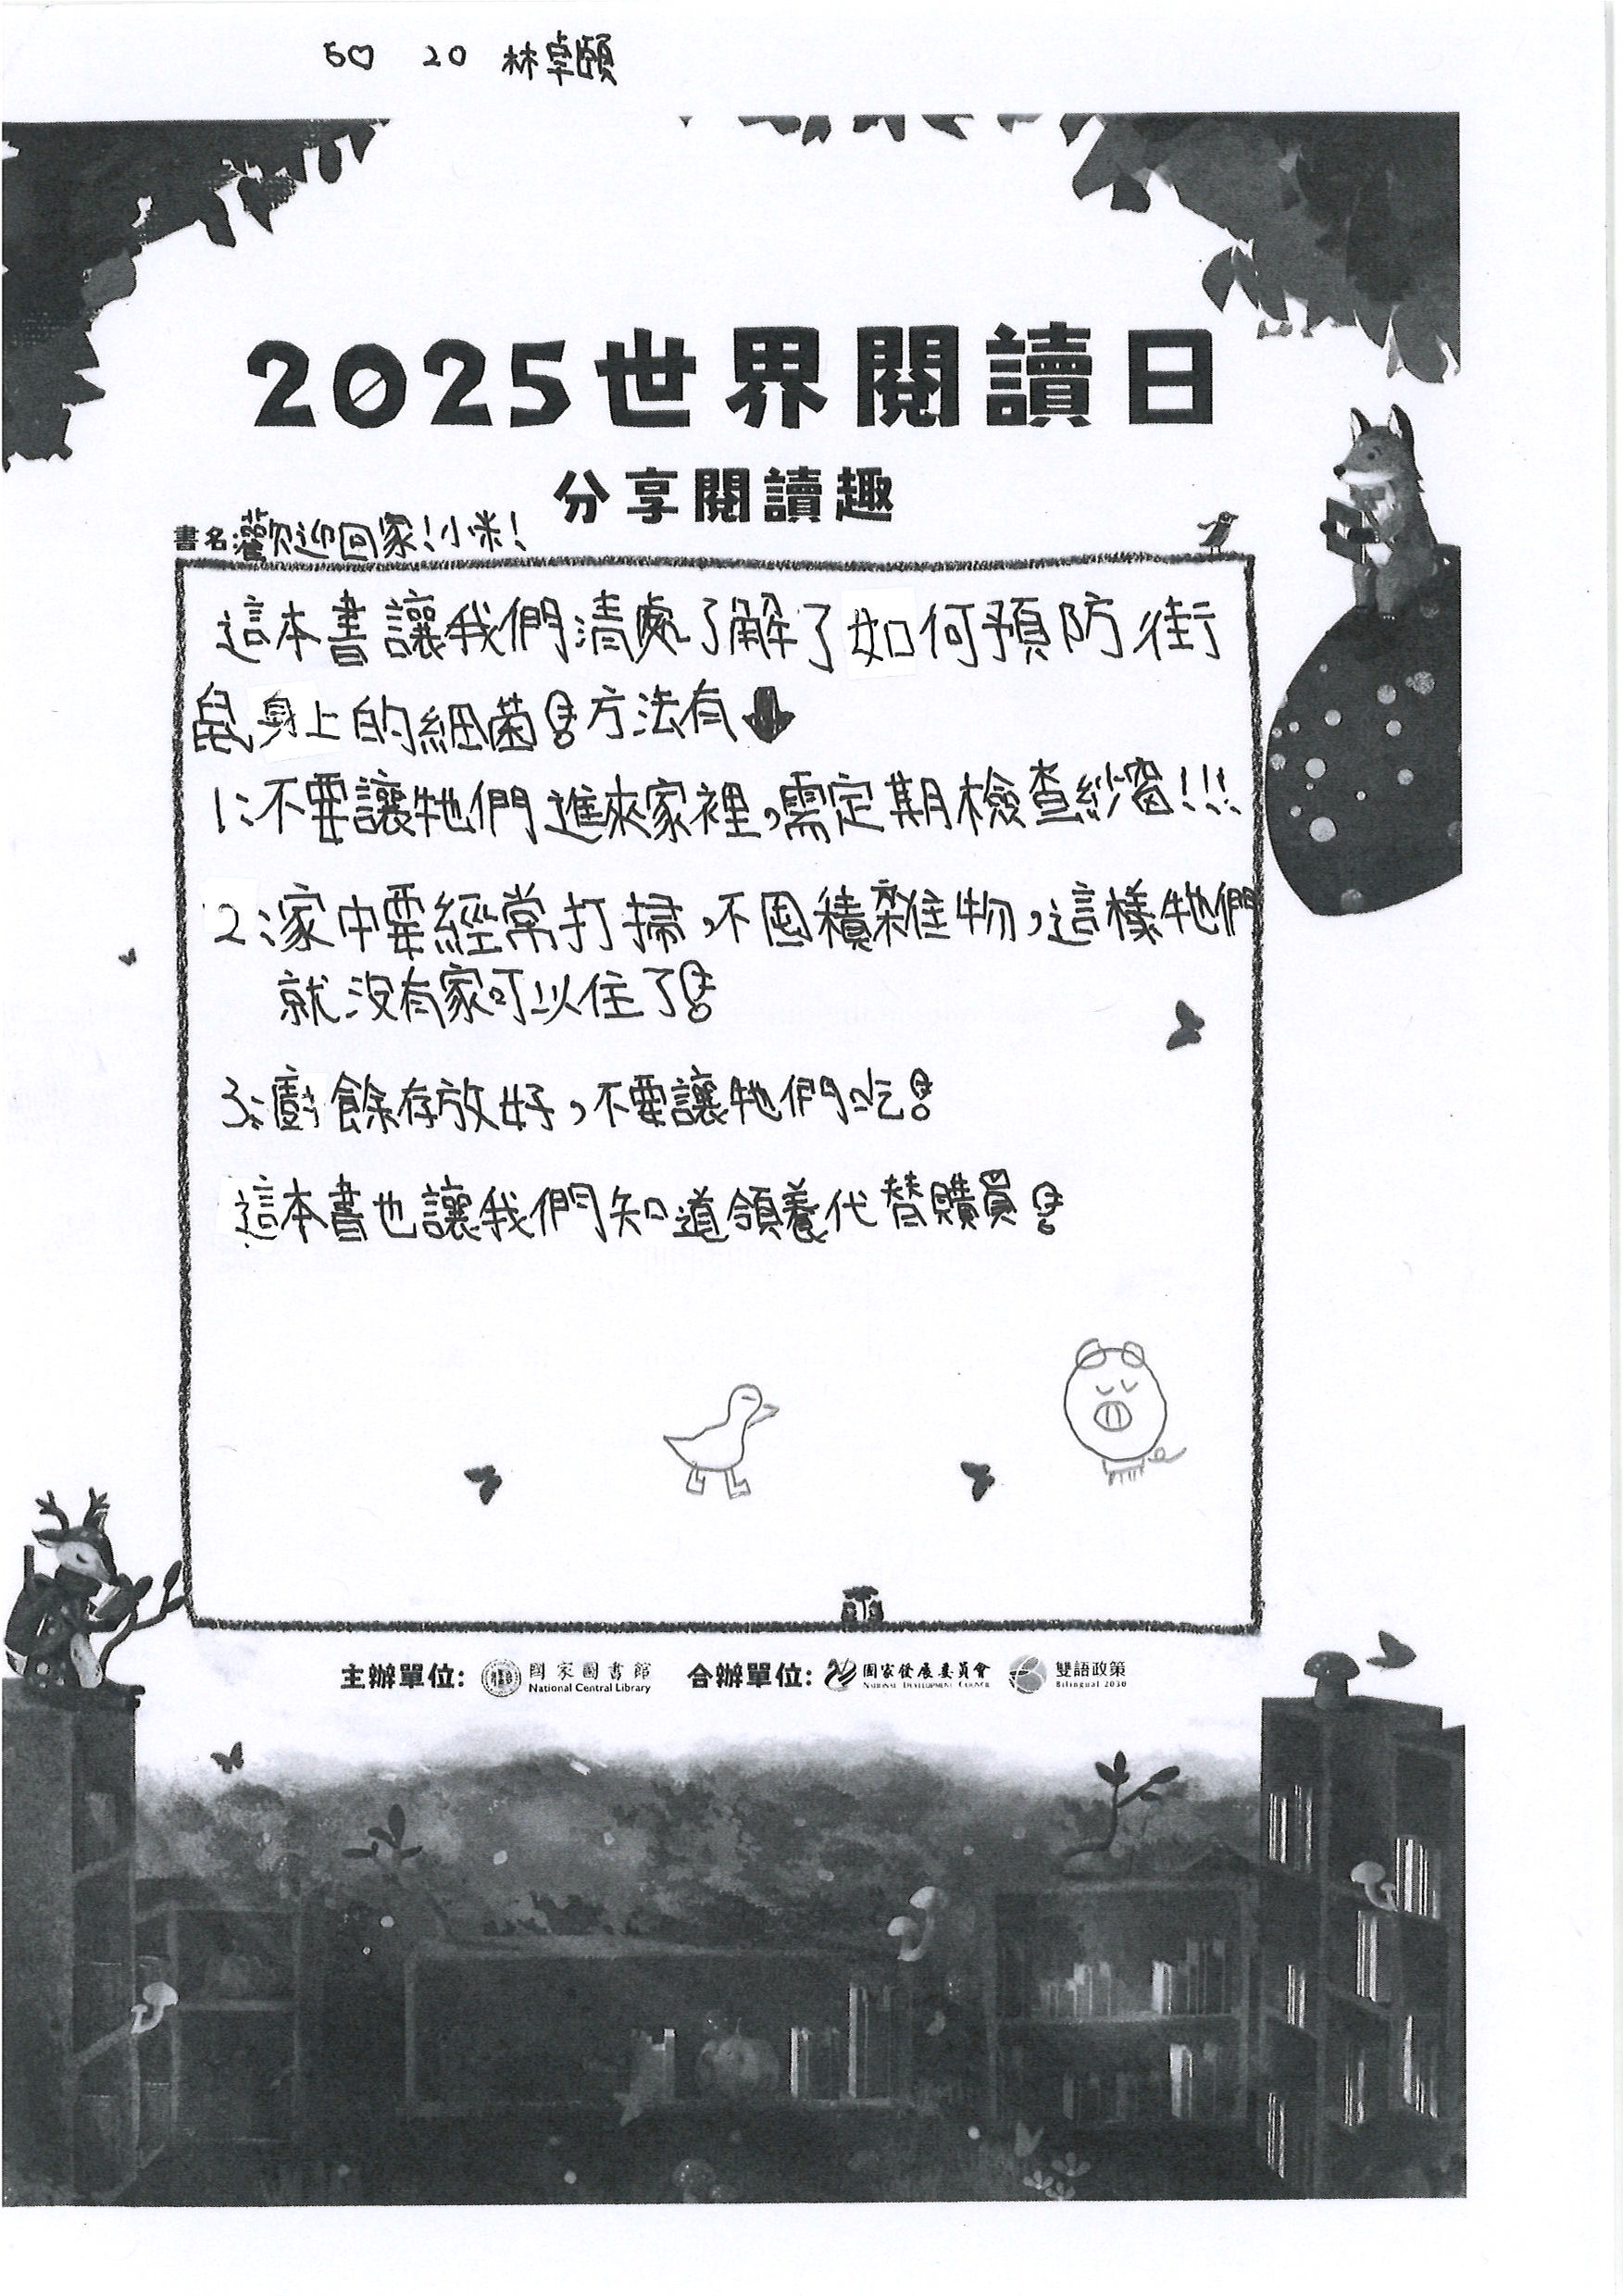 50 20 林卓頤
2025世界閱讀日
分享閱讀趣
書名:歡迎回家!小米!
這本書讓我們清處了解了如何預防街
鼠身上的細菌!方法有⬇
1:不要讓牠們進來家裡,需定期檢查紗窗!!!
2:家中要經常打掃,不囤積雜物,這樣牠們
就沒有家可以住了!
3:廚餘存放好,不要讓牠們吃!
這本書也讓我們知道領養代替購買!
主辦單位: 國家圖書館 National Central Library 合辦單位: 國家發展委員會 National Development Council 雙語政策 Bilingual 2030